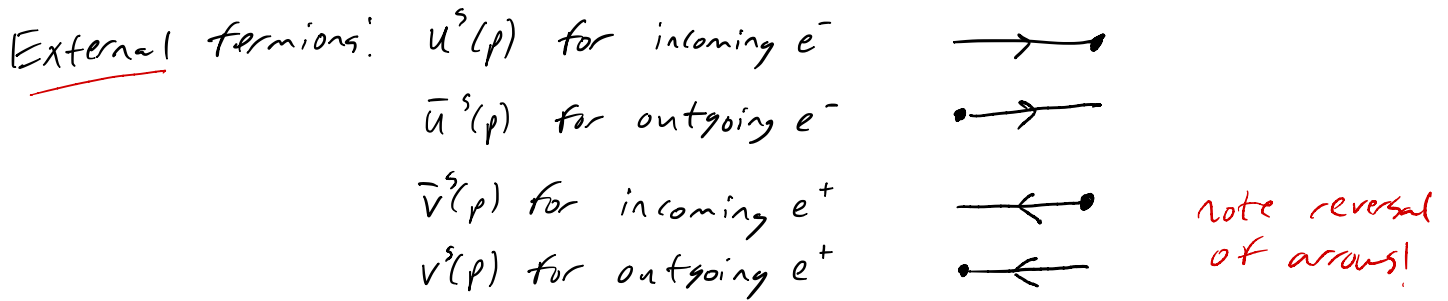 External fermions: uˢ(p) for incoming e⁻
ūˢ(p) for outgoing e⁻
v̄ˢ(p) for incoming e⁺
vˢ(p) for outgoing e⁺
note reversal
of arrows!